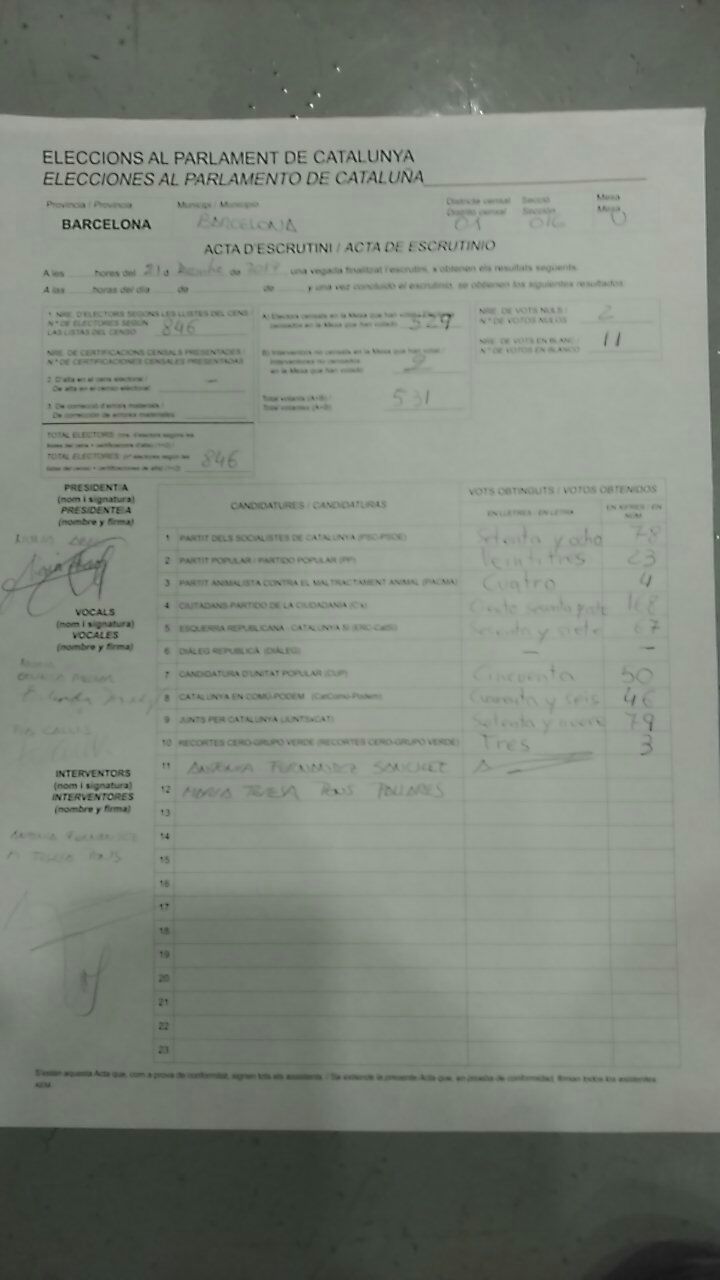 ELECCIONS AL PARLAMENT DE CATALUNYA
ELECCIONES AL PARLAMENTO DE CATALUÑA
Província / Provincia Municipi / Municipio Districte censal Secció Mesa
Distrito censal Sección Mesa
BARCELONA BARCELONA 01 016 U
ACTA D'ESCRUTINI / ACTA DE ESCRUTINIO
A les hores del 21 d de 2017, una vegada finalitzat l'escrutini, s'obtenen els resultats següents.
A las horas del día de de y una vez concluido el escrutinio, se obtienen los siguientes resultados:
1. NRE. D'ELECTORS SEGONS LES LLISTES DEL CENS / Nº DE ELECTORES SEGÚN LAS LISTAS DEL CENSO 846
NRE. DE CERTIFICACIONS CENSALS PRESENTADES / Nº DE CERTIFICACIONES CENSALES PRESENTADAS
2. D'alta en el cens electoral / De alta en el censo electoral: —
3. De correcció d'errors materials / De corrección de errores materiales:
TOTAL ELECTORS:
TOTAL ELECTORES: 846
A) Electors censats en la Mesa que han votat / censados en la Mesa que han votado 529
B) Interventors no censats en la Mesa que han votat / Interventores no censados en la Mesa que han votado
Total votants (A+B) / Total votantes (A+B) 531
NRE. DE VOTS NULS / Nº DE VOTOS NULOS 2
NRE. DE VOTS EN BLANC / Nº DE VOTOS EN BLANCO 11
PRESIDENT/A
(nom i signatura)
PRESIDENTE/A
(nombre y firma)
VOCALS
(nom i signatura)
VOCALES
(nombre y firma)
INTERVENTORS
(nom i signatura)
INTERVENTORES
(nombre y firma)
ANTONIA FERNANDEZ
M TERESA PONS
CANDIDATURES / CANDIDATURAS VOTS OBTINGUTS / VOTOS OBTENIDOS
EN LLETRES / EN LETRA EN XIFRES / EN NÚM.
1 PARTIT DELS SOCIALISTES DE CATALUNYA (PSC-PSOE) Setenta y ocho 78
2 PARTIT POPULAR / PARTIDO POPULAR (PP) Veintitres 23
3 PARTIT ANIMALISTA CONTRA EL MALTRACTAMENT ANIMAL (PACMA) Cuatro 4
4 CIUTADANS-PARTIDO DE LA CIUDADANIA (C's) Ciento sesenta 168
5 ESQUERRA REPUBLICANA - CATALUNYA SÍ (ERC-CatSí) Sesenta y siete 67
6 DIÀLEG REPUBLICÀ (DIÀLEG) — —
7 CANDIDATURA D'UNITAT POPULAR (CUP) Cincuenta 50
8 CATALUNYA EN COMÚ-PODEM (CatComú-Podem) Cuarenta y seis 46
9 JUNTS PER CATALUNYA (JUNTSxCAT) Setenta y nueve 79
10 RECORTES CERO-GRUPO VERDE (RECORTES CERO-GRUPO VERDE) Tres 3
11 ANTONIA FERNANDEZ SANCHEZ
12 MARIA TERESA PONS PALLARES
13
14
15
16
17
18
19
20
21
22
23
S'estén aquesta Acta que, com a prova de conformitat, signen tots els assistents. / Se extiende la presente Acta que, en prueba de conformidad, firman todos los asistentes.